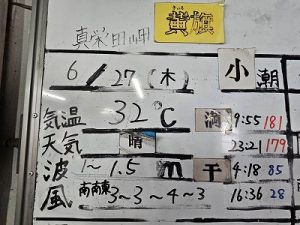 真栄田岬 黄旗
6/27(木) 小潮
気温 32℃ 満 9:55 181
天気 晴 23:21 179
波 1~1.5m 干 4:18 85
風 南南東 3~3~4~3 16:36 28